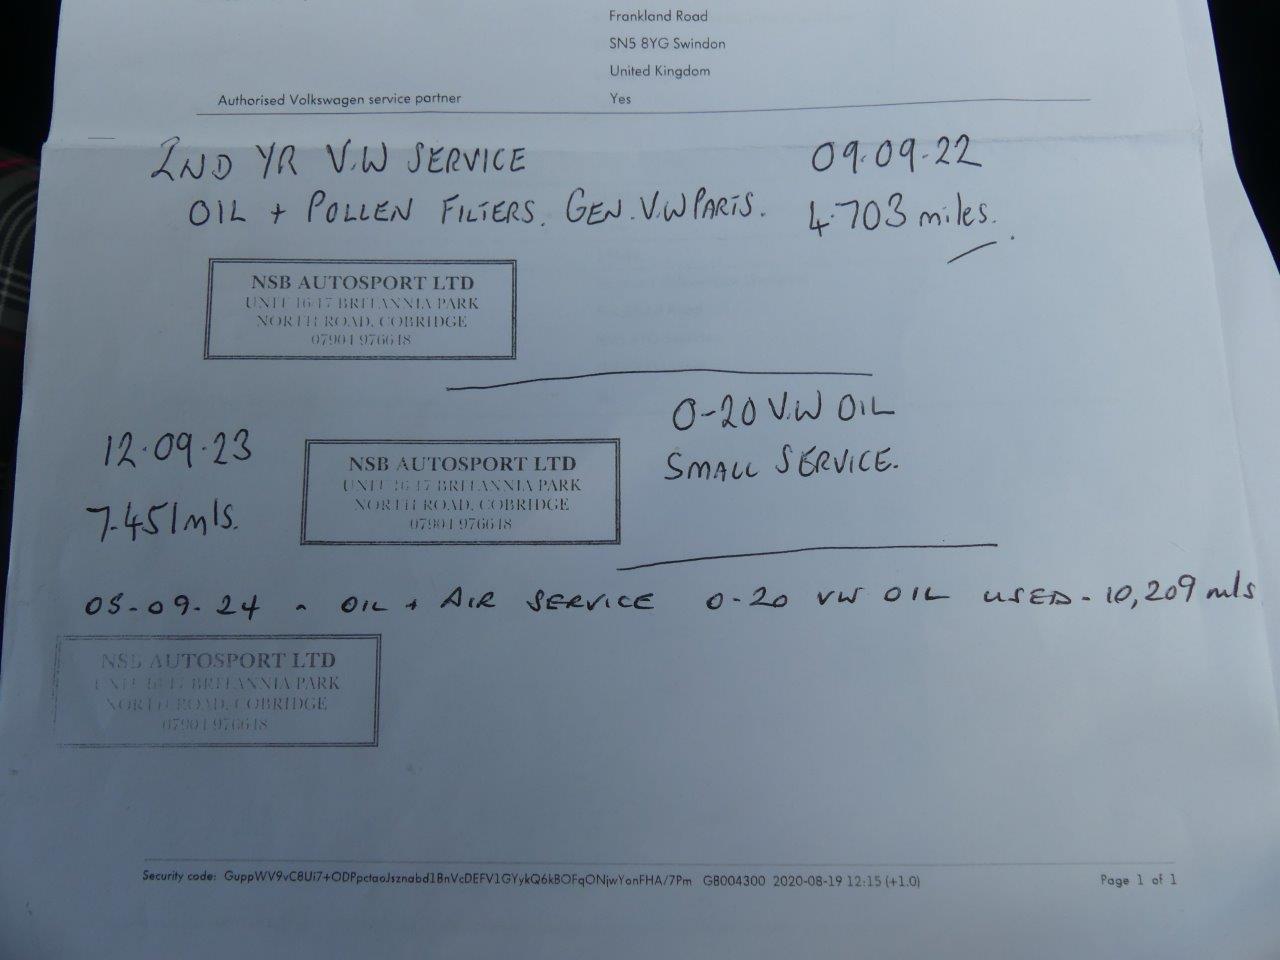 Frankland Road
SN5 8YG Swindon
United Kingdom
Authorised Volkswagen service partner Yes
2ND YR V.W SERVICE 09.09.22
OIL + POLLEN FILTERS. GEN. V.W PARTS. 4.703 miles.
NSB AUTOSPORT LTD
UNIT 16-17 BRITANNIA PARK
NORTH ROAD, COBRIDGE
07904 976648
0-20 V.W OIL
12.09.23
SMALL SERVICE.
7.451 mls.
NSB AUTOSPORT LTD
UNIT 16-17 BRITANNIA PARK
NORTH ROAD, COBRIDGE
07904 976648
05-09-24 - OIL + AIR SERVICE 0-20 VW OIL USED - 10,209 mls
NSB AUTOSPORT LTD
UNIT 16-17 BRITANNIA PARK
NORTH ROAD, COBRIDGE
07904 976648
Security code: GuppWV9vC8Ui7+ODPpctaoJsznabd1BnVcDEFV1GYykQ6kBOFqONjwYonFHA/7Pm GB004300 2020-08-19 12:15 (+1.0) Page 1 of 1